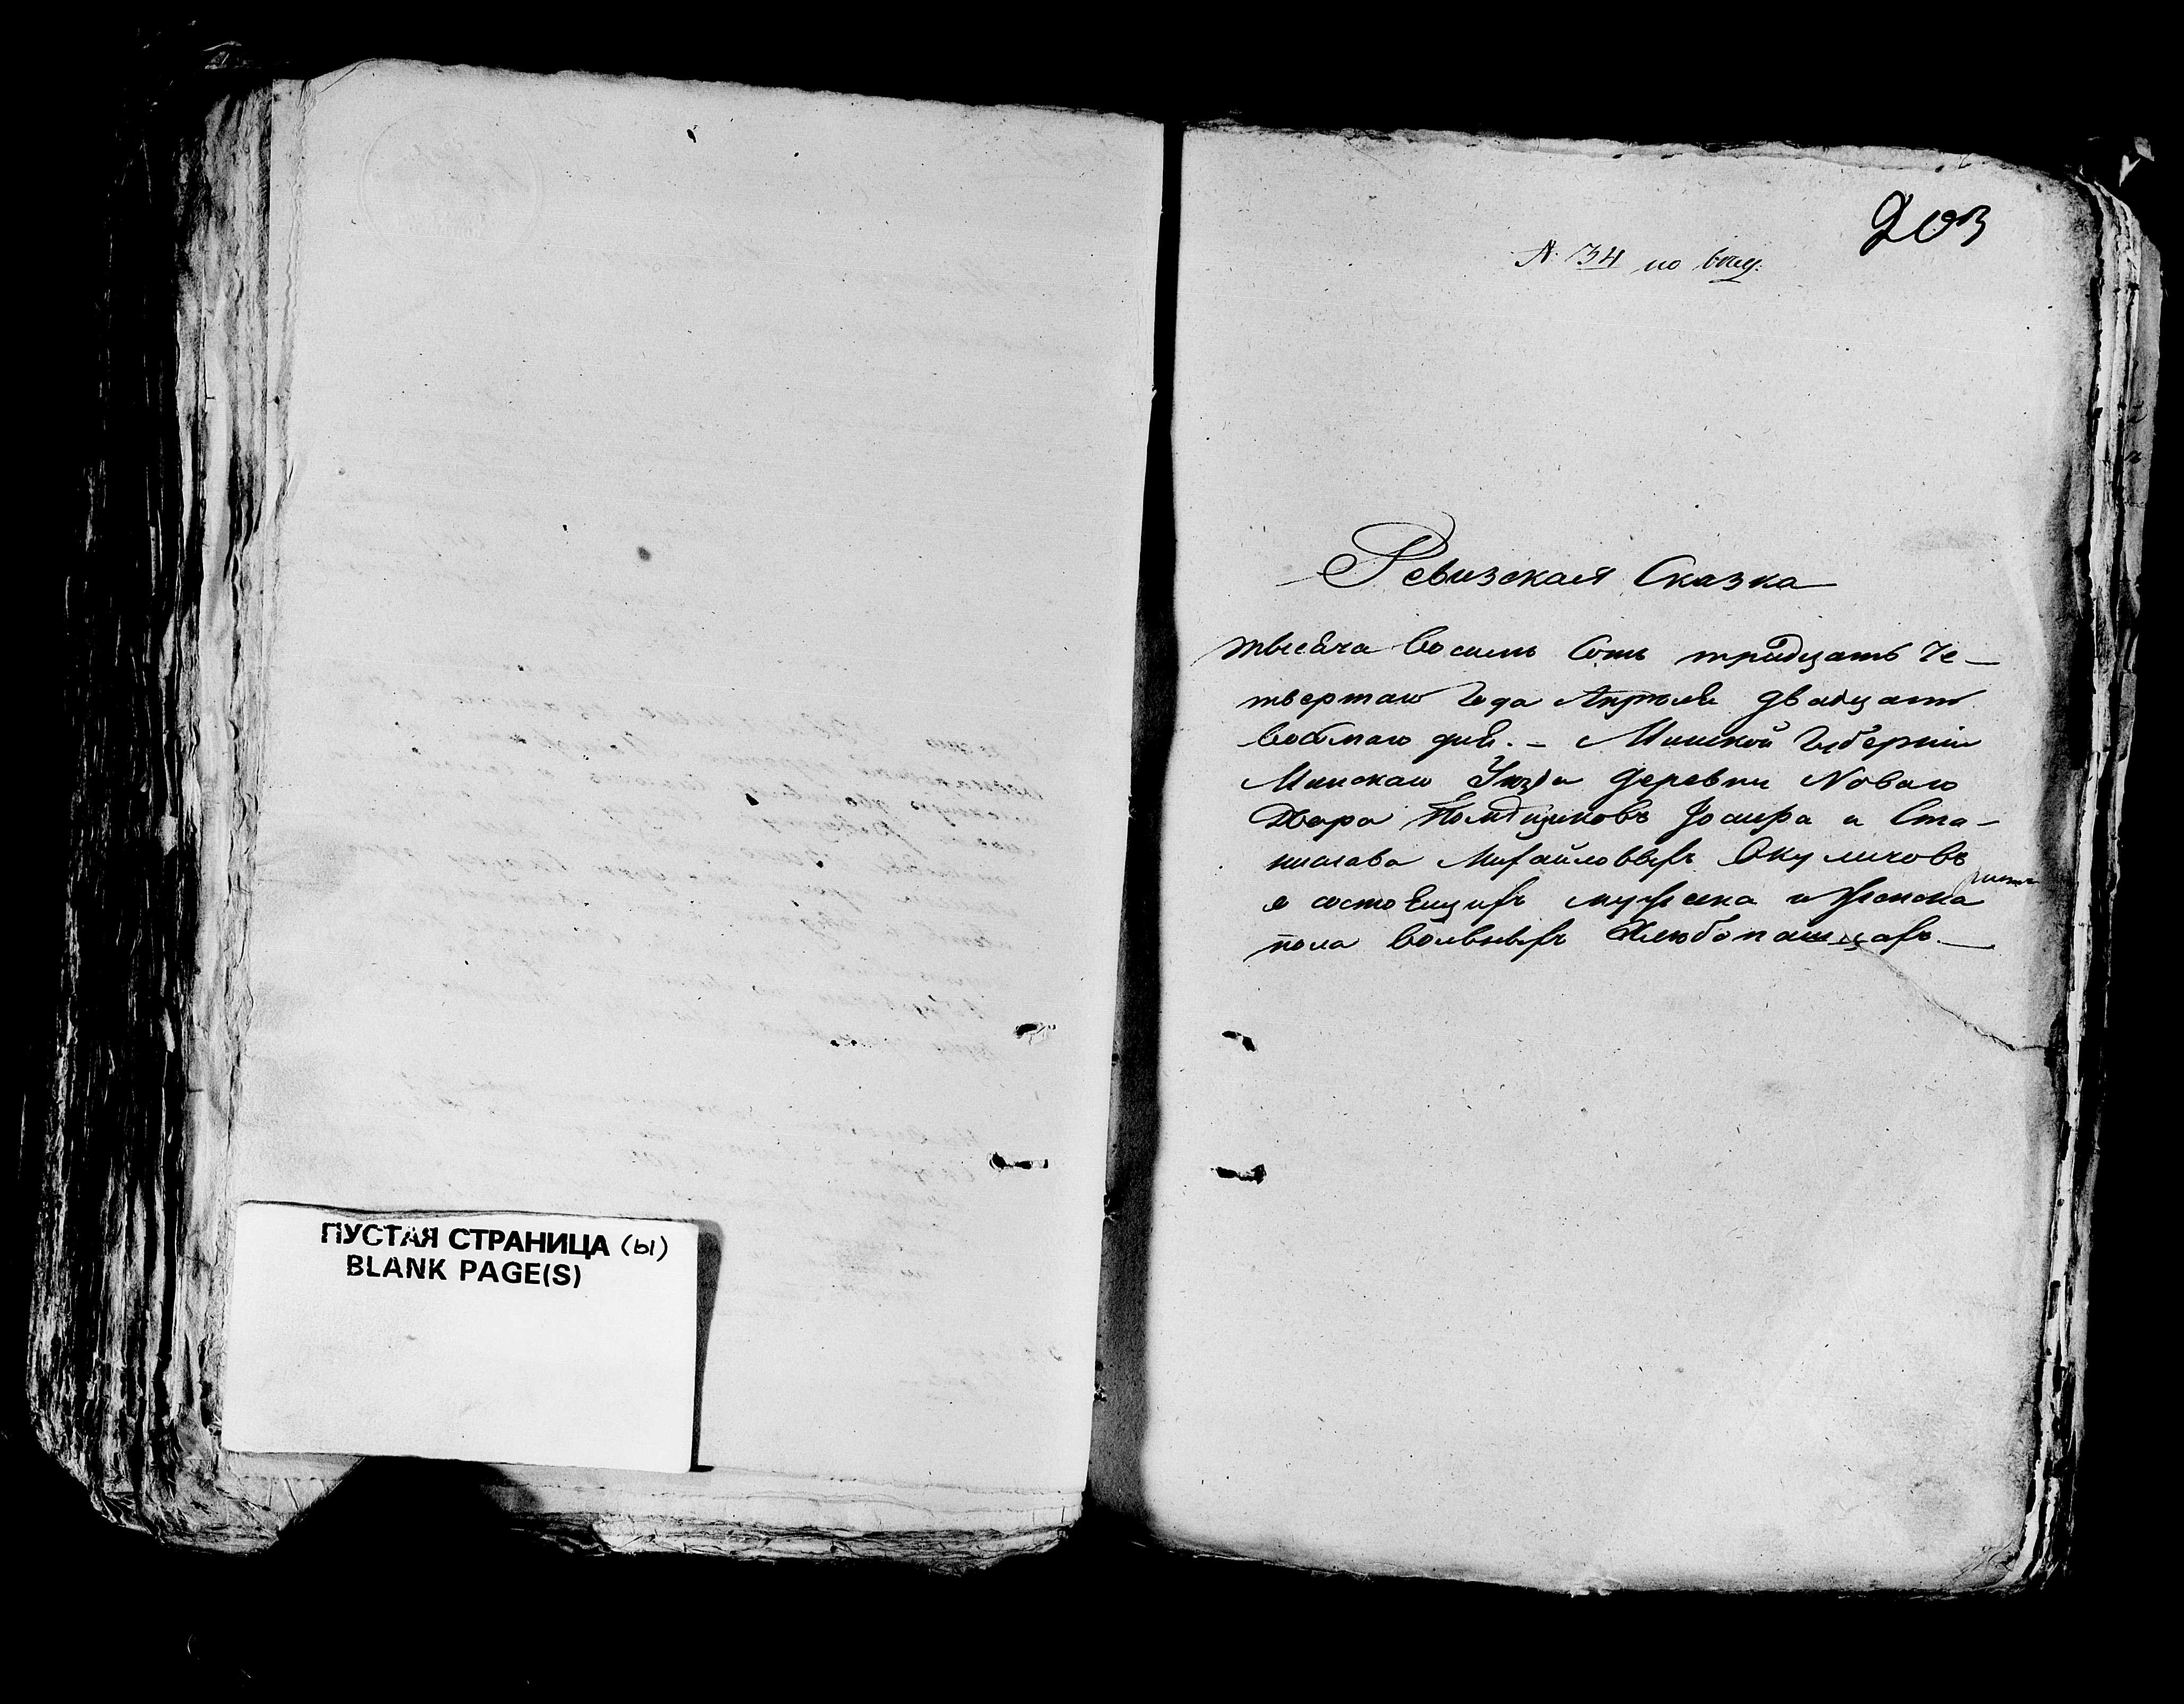 ПУСТАЯ СТРАНИЦА (Ы)
BLANK PAGE(S)
203
№ 34 по
Ревизская Сказка
тысяча восемь сотъ тридцать че-
твертаго года Апреля двадцать
восмаго дня. – Минской Губерніи
Минскаго Уезда деревни Новаго
Двора Помещиковъ Іосифа и Ста-
нислава Михайловыхъ Окуличовъ
о состоящихъ мужеска и женска
пола вольныхъ хлебопашцахъ. –